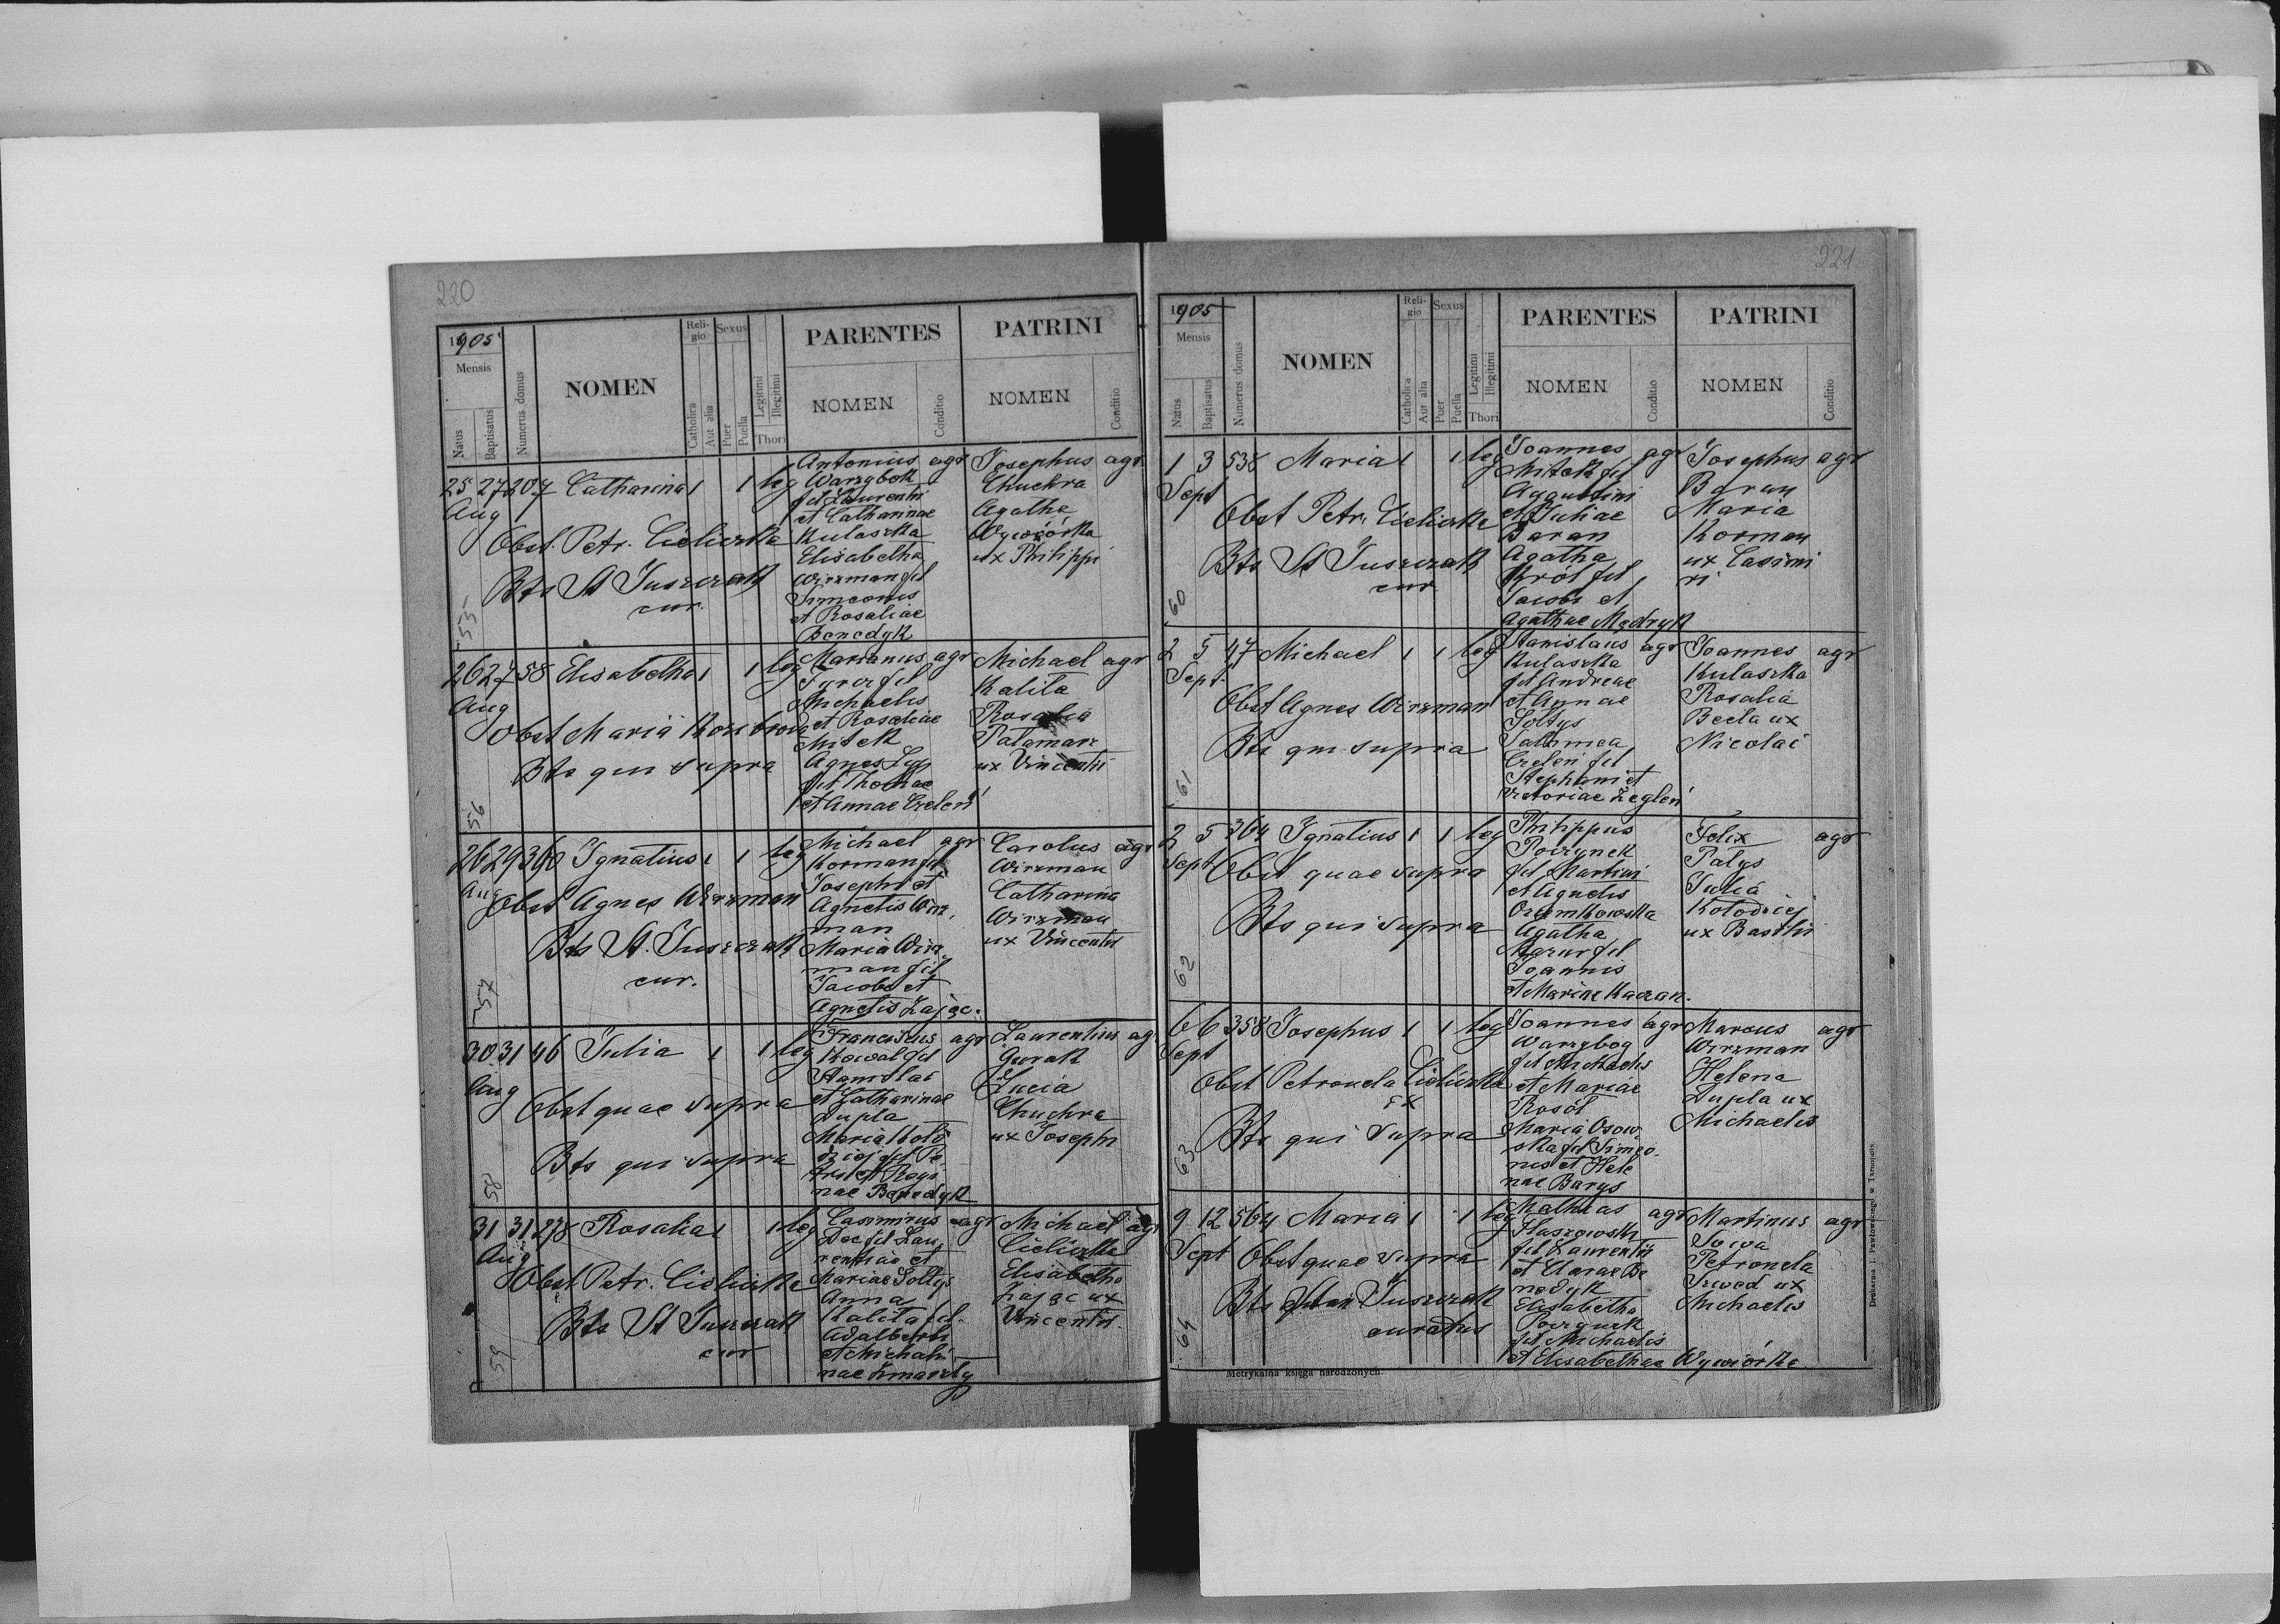 220
1905
Mensis
Natus
Baptisatus
Numerus domus
NOMEN
Religio
Catholica
Aut alia
Sexus
Puer
Puella
Legitimi
Illegitimi
Thori
PARENTES
NOMEN
Conditio
PATRINI
NOMEN
Conditio
25 27 207 Catharina 1 1 leg
Aug
Obst. Petr. Cieliczka
Bts St Juszczak
cur.
55
Antonius agr
Warzybok
fil Laurentii
et Catharinae
Kulaszka
Elisabetha
Wirzman fil
Simeonis
et Rosaliae
Benedyk
Josephus agr
Chuchra
Agatha
Wywiórka
ux Philippi
26 27 58 Elisabetha 1 1 leg
Aug
Obst Maria
Bts qui supra
56
Marianus agr
fil
Michaelis
et Rosaliae
Mitek
Agnes
fil Thomae
et Annae Czeleń
Michael agr
Kalita
Rosalia
Palamarz
ux Vincentii
26 29 360 Ignatius 1 1 leg
Aug
Obst Agnes Wirzman
Bts St. Juszczak
cur.
57
Michael agr
Korman fil
Josephi et
Agnetis Wirz
man
Maria Wirz
man fil
Jacobi et
Agnetis Zając.
Carolus agr
Wirzman
Catharina
Wirzman
ux Vincentii
30 31 46 Julia 1 1 leg
Aug
Obst quae supra
Bts qui supra
58
Franciscus agr
Kowal fil
Stanislai
et Catharinae
Dupla
Maria Koło
dziej fil Pe
tri et Regi
nae Benedyk
Laurentius ag
Gurak
Lucia
Chuchra
ux Josephi
31 31 278 Rosalia 1 1 leg
Aug
Obst Petr. Cieliczka
Bts St Juszczak
cur
59
Casimirus agr
Dec fil Lau
rentii et
Mariae Sołtys
Anna
Kalita fil.
Adalberti
et Michali
nae Zmarzły
Michael agr
Cieliczka
Elisabetha
Zając ux
Vincentii.
221
1905
Mensis
Natus
Baptisatus
Numerus domus
NOMEN
Religio
Catholica
Aut alia
Sexus
Puer
Puella
Legitimi
Illegitimi
Thori
PARENTES
NOMEN
Conditio
PATRINI
NOMEN
Conditio
1 3 538 Maria 1 1 leg
Sept
Obst Petr. Cieliczka
Bts St Juszczak
cur
60
Joannes agr
Mitek fil
Augustini
et Juliae
Baran
Agatha
Król fil
Jacobi et
Agathae Mądryk
Josephus agr
Baran
Maria
Korman
ux Casimi
ri
2 5 47 Michael 1 1 leg
Sept.
Obst Agnes Wirzman
Bts qui supra
61
Stanislaus agr
Kulaszka
fil Andreae
et Annae
Sołtys
Salomea
Czeleń fil
Stephani et
Victoriae Żegleń
Joannes agr
Kulaszka
Rosalia
Becla ux
Nicolai
2 5 364 Ignatius 1 1 leg
Sept
Obst quae supra
Bts qui supra
62
Philippus
Poczynek
fil Martini
et Agnetis
Oziemkowska
Agatha
Mazur fil
Joannis
et Mariae Kaczan.
Felix agr
Patys
Julia
Kołodziej
ux Basilii
6 6 358 Josephus 1 1 leg
Sept
Obst Petronela Cieliczka
ex
Bts qui supra
63
Joannes agr
Warzybog
fil Michaelis
et Mariae
Rosół
Maria Osow
ska fil Simeo
nis et Hele
nae Barys
Marcus agr
Wirzman
Helena
Dupla ux
Michaelis
9 12 564 Maria 1 1 leg
Sept
Obst quae supra
Bts Stan Juszczak
curatus
64
Mathias agr
Huszowski
fil Laurentii
et Clarae Be
nedyk
Elisabetha
Poczynek
fil Michaelis
et Elisabethae Wywiórka
Martinus agr
Sowa
Petronela
Szwed ux
Michaelis
Metrykalna księga narodzonych.
Drukarnia J. Pawłowskiego w Tarnopolu.